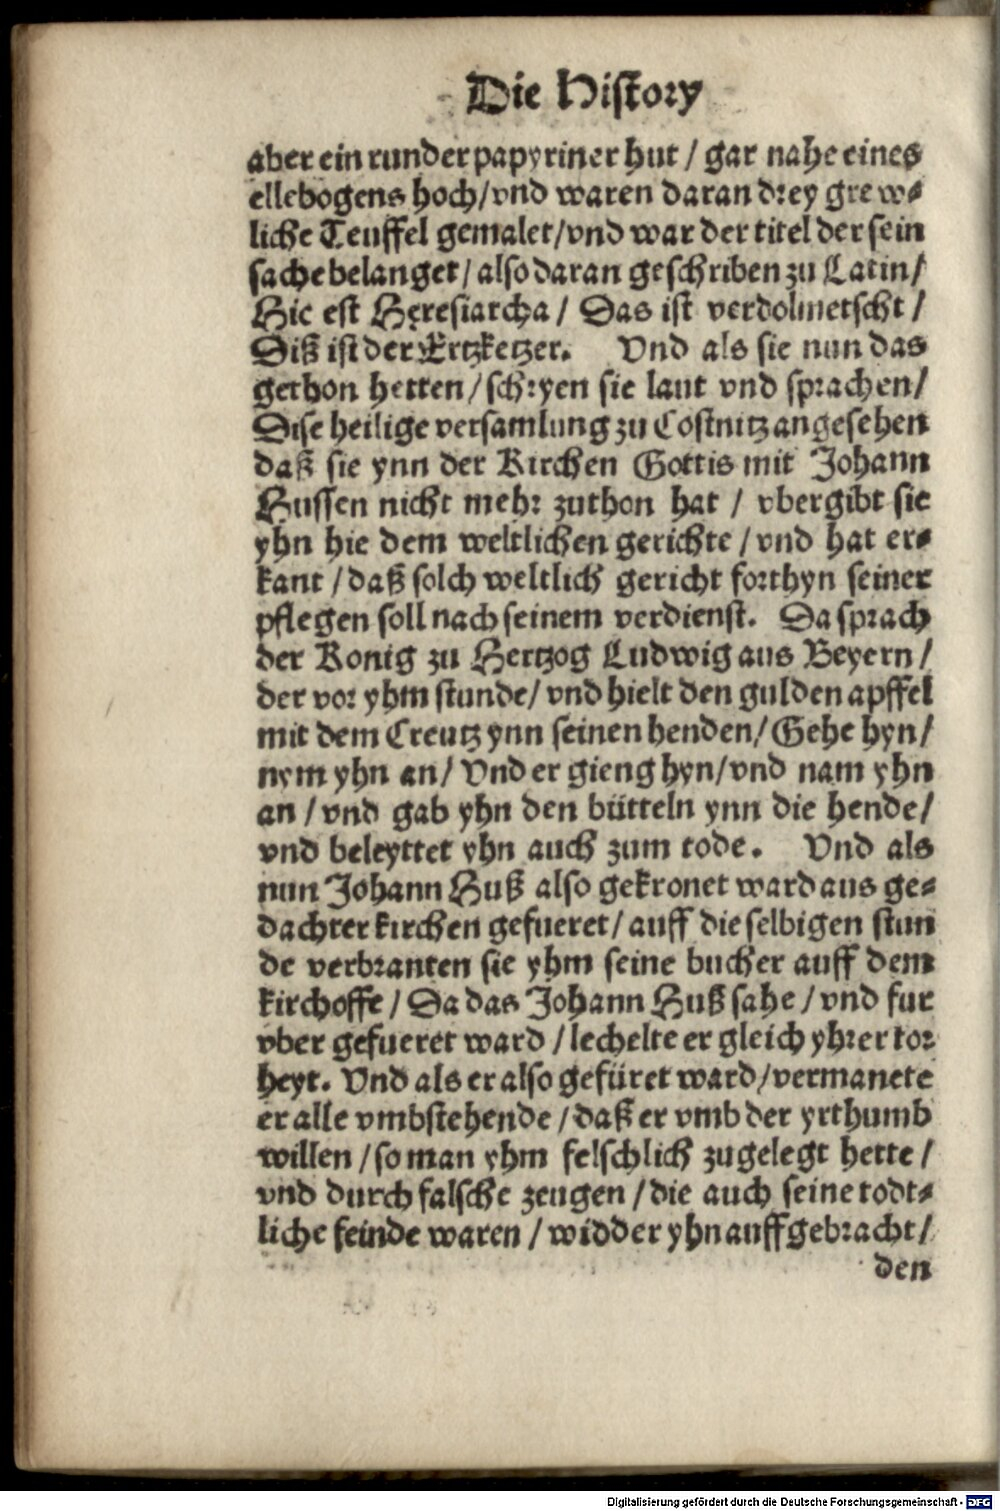 Die History
aber ein runder papyriner hut / gar nahe eines
ellebogens hoch / vnd waren daran drey grew⸗
liche Teuffel gemalet / vnd war der titel der sein
sache belanget / also daran geschriben zu Latin /
Hic est Hęresiarcha / Das ist verdolmetscht /
Diß ist der Ertzketzer. Vnd als sie nun das
gethon hetten / schryen sie laut vnd sprachen /
Dise heilige versamlung zu Costnitz angesehen
daß sie ynn der Kirchen Gottis mit Johann
Hussen nicht mehr zuthon hat / vbergibt sie
yhn hie dem weltlichen gerichte / vnd hat er⸗
kant / daß solch weltlich gericht forthyn seiner
pflegen soll nach seinem verdienst. Da sprach
der Konig zu Hertzog Ludwig aus Beyern /
der vor yhm stunde / vnd hielt den gulden apffel
mit dem Creutz ynn seinen henden / Gehe hyn /
nym yhn an / Vnd er gieng hyn / vnd nam yhn
an / vnd gab yhn den bütteln ynn die hende /
vnd beleyttet yhn auch zum tode. Vnd als
nun Johann Huß also gekronet ward aus ge⸗
dachter kirchen gefueret / auff die selbigen stun
de verbranten sie yhm seine bucher auff dem
kirchoffe / Da das Johann Huß sahe / vnd fur
vber gefueret ward / lechelte er gleich yhrer tor
heyt. Vnd als er also gefüret ward / vermanete
er alle vmbstehende / daß er vmb der yrthumb
willen / so man yhm felschlich zugelegt hette /
vnd durch falsche zeugen / die auch seine todt⸗
liche feinde waren / widder yhn auffgebracht /
den
Digitalisierung gefördert durch die Deutsche Forschungsgemeinschaft - DFG